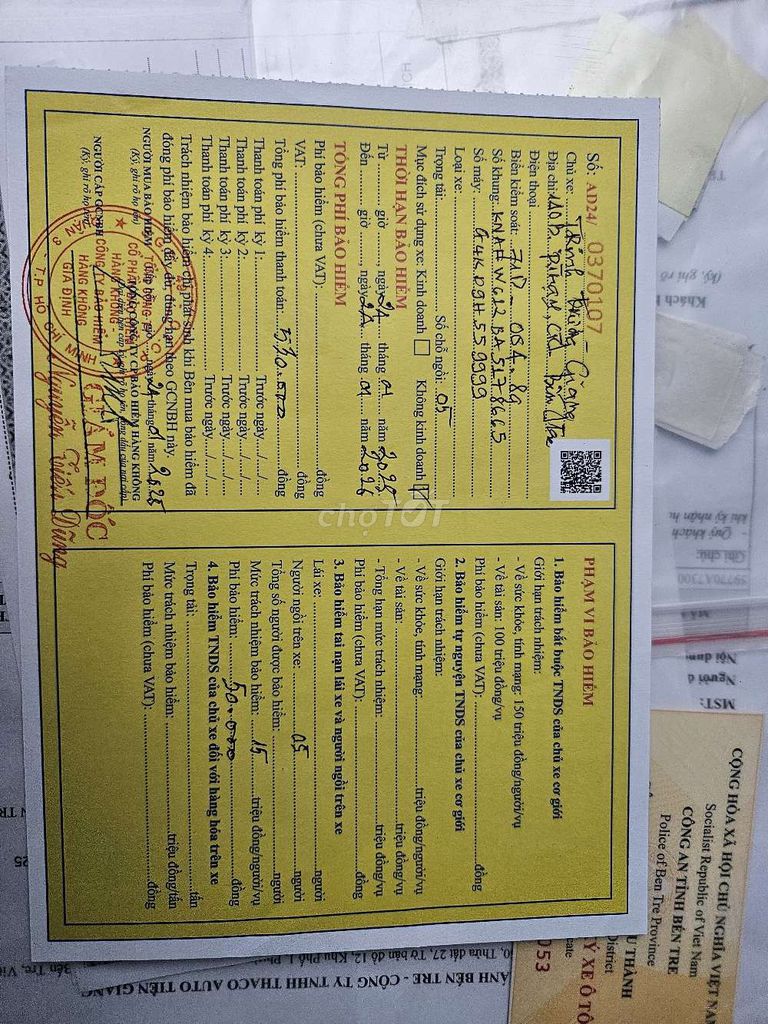 Số: AD24/ 0370107
Chủ xe: Trịnh Trường Giang
Địa chỉ: 140B
Điện thoại:
Biển kiểm soát: 71D - 004.89
Số khung: KNAHW612BA5178665
Số máy: G4KDGH559999
Loại xe:
Trọng tải: Số chỗ ngồi: 05
Mục đích sử dụng xe: Kinh doanh Không kinh doanh
THỜI HẠN BẢO HIỂM
Từ giờ, ngày 24 tháng 01 năm 2025
Đến giờ, ngày 24 tháng 01 năm 2026
TỔNG PHÍ BẢO HIỂM
Phí bảo hiểm (chưa VAT): đồng
VAT: đồng
Tổng phí bảo hiểm thanh toán: 530.000 đồng
Thanh toán phí kỳ 1: Trước ngày.../.../...
Thanh toán phí kỳ 2: Trước ngày.../.../...
Thanh toán phí kỳ 3: Trước ngày.../.../...
Thanh toán phí kỳ 4: Trước ngày.../.../...
Trách nhiệm bảo hiểm chỉ phát sinh khi Bên mua bảo hiểm đã
đóng phí bảo hiểm đầy đủ, đúng hạn theo GCNBH này.
NGƯỜI MUA BẢO HIỂM
(Ký, ghi rõ họ tên)
NGƯỜI CẤP GCNBH
(Ký, ghi rõ họ tên)
CÔNG TY BẢO HIỂM
HÀNG KHÔNG
GIA ĐỊNH
T.P HỒ CHÍ MINH
GIÁM ĐỐC
Nguyễn Tiến Dũng
PHẠM VI BẢO HIỂM
1. Bảo hiểm bắt buộc TNDS của chủ xe cơ giới
Giới hạn trách nhiệm:
- Về sức khỏe, tính mạng: 150 triệu đồng/người/vụ
- Về tài sản: 100 triệu đồng/vụ
Phí bảo hiểm (chưa VAT): đồng
2. Bảo hiểm tự nguyện TNDS của chủ xe cơ giới
Giới hạn trách nhiệm:
- Về sức khỏe, tính mạng: triệu đồng/người/vụ
- Về tài sản: triệu đồng/vụ
- Tổng hạn mức trách nhiệm: triệu đồng/vụ
Phí bảo hiểm (chưa VAT): đồng
3. Bảo hiểm tai nạn lái xe và người ngồi trên xe
Lái xe: người
Người ngồi trên xe: 05 người
Tổng số người được bảo hiểm: người
Mức trách nhiệm bảo hiểm: 15 triệu đồng/người/vụ
Phí bảo hiểm: 50.000 đồng
4. Bảo hiểm TNDS của chủ xe đối với hàng hóa trên xe
Trọng tải: tấn
Mức trách nhiệm bảo hiểm: triệu đồng/tấn
Phí bảo hiểm (chưa VAT): đồng
chợTỐT
CỘNG HÒA XÃ HỘI CHỦ NGHĨA VIỆT NA
Socialist Republic of Viet Nam
CÔNG AN TỈNH BẾN TRE
Police of Ben Tre Province
U THÀNH
District
Ý XE Ô TÔ
cate
053
ÁNH BẾN TRE - CÔNG TY TNHH THACO AUTO TIỀN GIANG
Thửa đất 27, Tờ bản đồ 12, Khu Phố 1
MST:
Người đ
Nội dun
Ghi chú:
- Quý khách
khi ký nhận h
(ký, ghi rõ
Khách